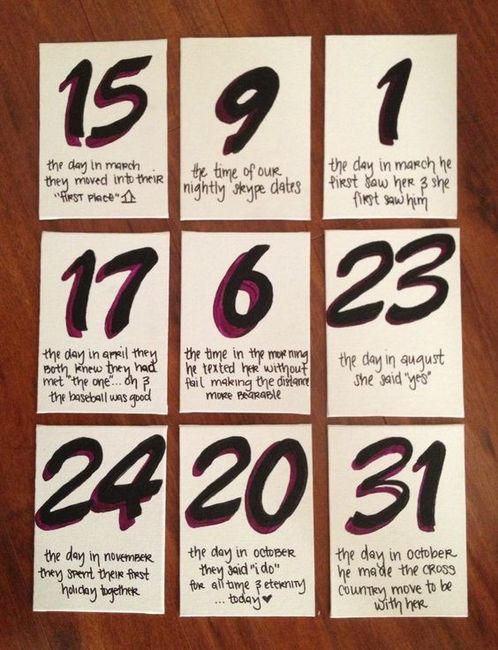 15
the day in march
they moved into their
"first place"
9
the time of our
nightly skype dates
1
the day in march he
first saw her & she
first saw him
17
the day in april they
both knew they had
met "the one"... oh &
the baseball was good
6
the time in the morning
he texted her without
fail making the distance
more bearable
23
the day in august
she said "yes"
24
the day in november
they spent their first
holiday together
20
the day in october
they said "i do"
for all time & eternity
... today ♥
31
the day in october
he made the cross
country move to be
with her